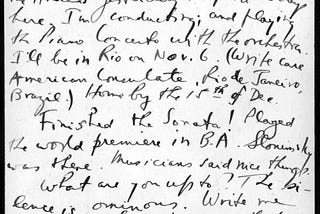 here. I'm conducting, and playing
the Piano Concerto with the orchestra.
I'll be in Rio on Nov. 6 (Write care
American Consulate, Rio de Janeiro,
Brazil.) Home by the 15th of Dec.
Finished the Sonata! Played
the world premiere in B.A. Slonimsky
was there. Musicians said nice things.
What are you up to? The si-
lence is ominous. Write me